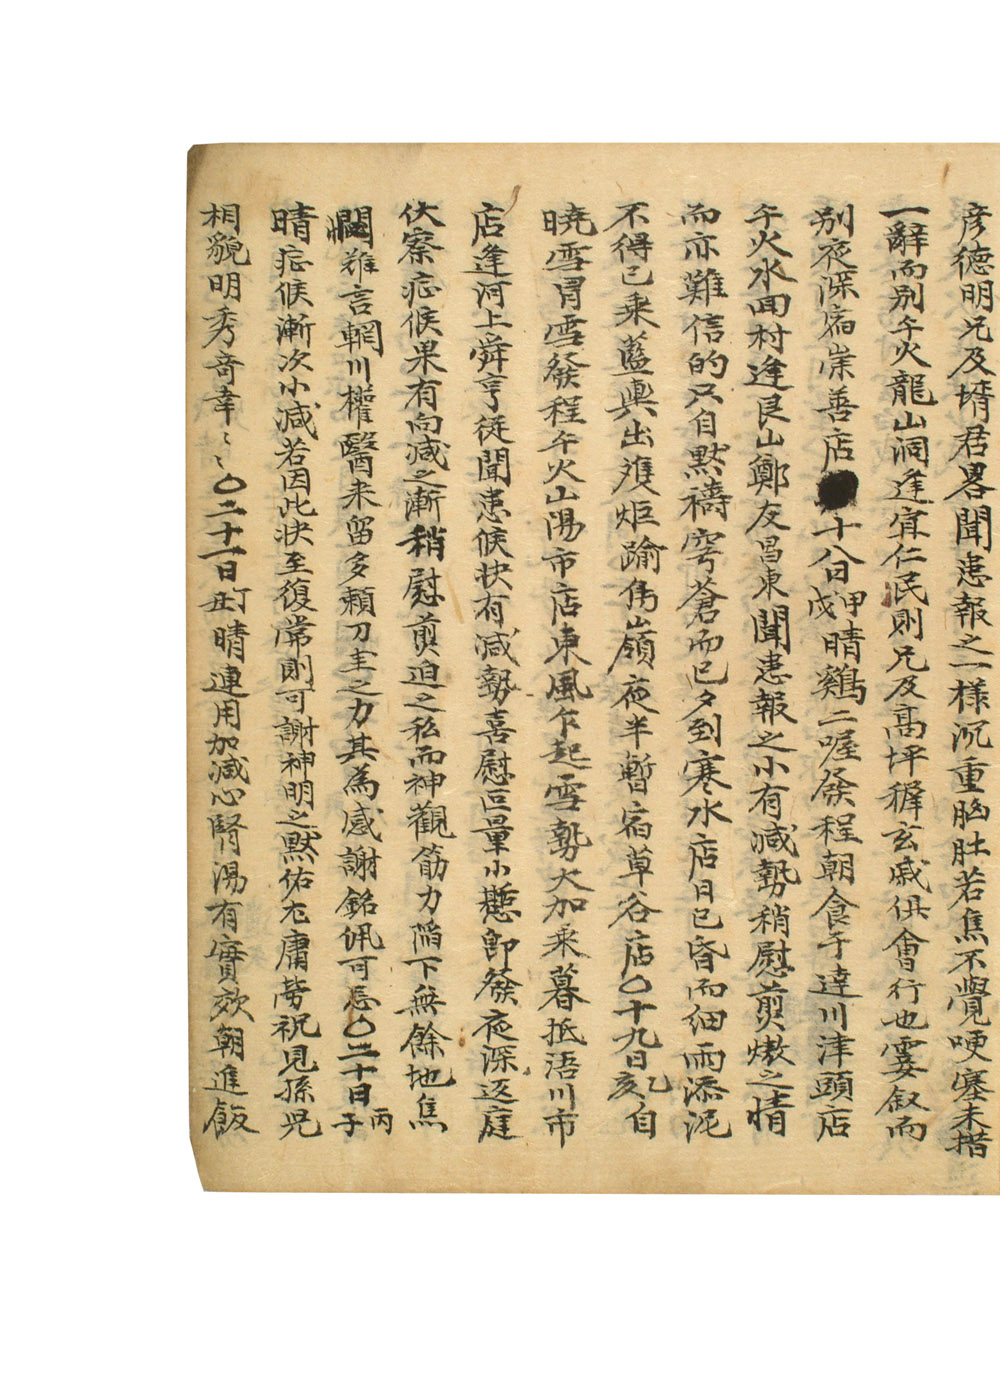 彦德明兄及壻君畧聞患報之一樣沉重胸肚若焦不覺哽塞未措
一辭而別午火龍山洞逢宜仁民則兄及高坪穉玄戚俱會行也霎叙而
別夜深宿崇善店十八日甲戌晴鷄二喔發程朝食于達川津頭店
午火水回村逢艮山鄭友昌東聞患報之小有减勢稍慰煎熬之情
而亦難信的只自默禱穹蒼而已夕到寒水店日已昏而細雨添泥
不得已乘藍輿出進炬踰嶺夜半暫宿草谷店〇十九日乙亥自
曉雪冒雪發程午火山陽市店東風乍起雪勢大加乘暮抵浯川市
店逢河上舜亨從聞患候快有减勢喜慰叵量小憇卽發夜深返庭
伏察症候果有向减之漸稍慰煎迫之私而神觀筋力陷下無餘地焦
悶難言輞川權醫來留多賴刀圭之力其為感謝銘佩可忘〇二十日丙子
晴症候漸次小减若因此快至復常則可謝神明之默佑尤庸勞祝見孫兒
相貌明秀奇幸〻〻〇二十一日丁丑晴連用加减心腎湯有實效朝進飯